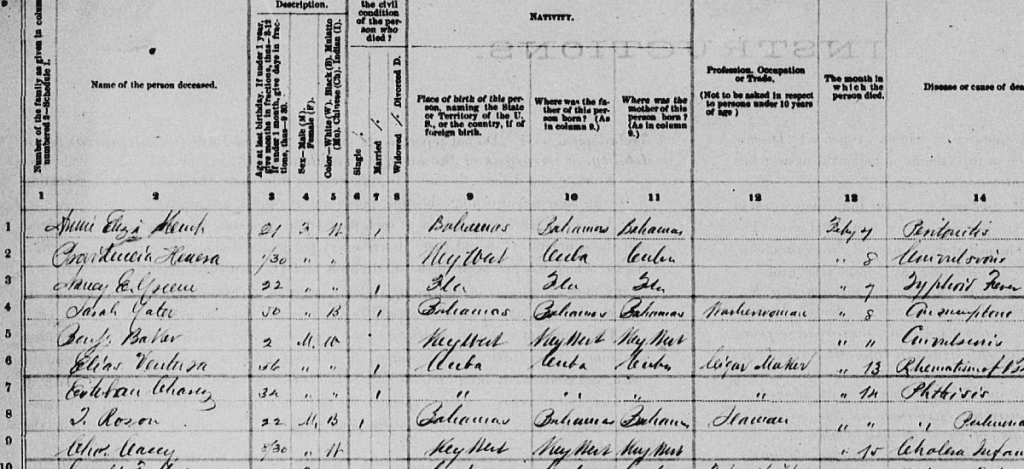 INSTRUCTIONS.
Description.
the civil condition of the person who died?
NATIVITY.
Number of the family as given in column numbered 2—Schedule 1.
Name of the person deceased.
Age at last birthday. If under 1 year, give months in fractions, thus—3-12 If under 1 month, give days in fractions, thus—9 30.
Sex—Male (M), Female (F).
Color—White (W), Black (B), Mulatto (Mu), Chinese (Ch), Indian (I).
Single /.
Married /.
Widowed /. Divorced D.
Place of birth of this person, naming the State or Territory of the U. S., or the country, if of foreign birth.
Where was the father of this person born? (As in column 9.)
Where was the mother of this person born? (As in column 9.)
Profession, Occupation or Trade.
(Not to be asked in respect to persons under 10 years of age)
The month in which the person died.
Disease or cause of
1 2 3 4 5 6 7 8 9 10 11 12 13 14
1 Annie Eliza Kemp 21 F W / Bahamas Bahamas Bahamas Feby 7 Peritonitis
2 /30 " " Key West Cuba Cuba " 8 Convulsions
3 Nancy E. Green 22 " " / Fla Fla Fla " 7 Typhoid Fever
4 Sarah 50 " B / Bahamas Bahamas Bahamas Washerwoman " 8 Consumption
5 Benj. Baker 2 M W Key West Key West Key West " " Convulsions
6 Elias Ventura 56 " " / Cuba Cuba Cuba Cigar Maker " 13 Rhematism of
7 Esteban 34 " " / " " " " " 14 Phthisis
8 T. 22 M B / Bahamas Bahamas Bahamas Seaman " " "
9 /30 " W Key West Key West Key West " 15 Cholera Infan
10